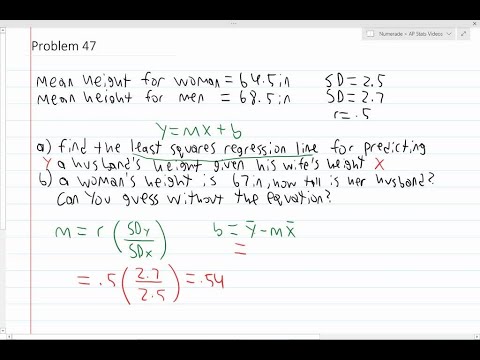 Numerade > AP Stats Videos
Problem 47
mean height for woman = 64.5in SD = 2.5
mean height for men = 68.5in SD = 2.7
r = .5
Y = mx + b
a) find the least squares regression line for predicting
Y a husband's height given his wife's height X
b) a woman's height is 67in, how tall is her husband?
Can you guess without the equation?
m = r (SDy/SDx) b = ȳ - mx̄
= .5 (2.7/2.5) = .54 =